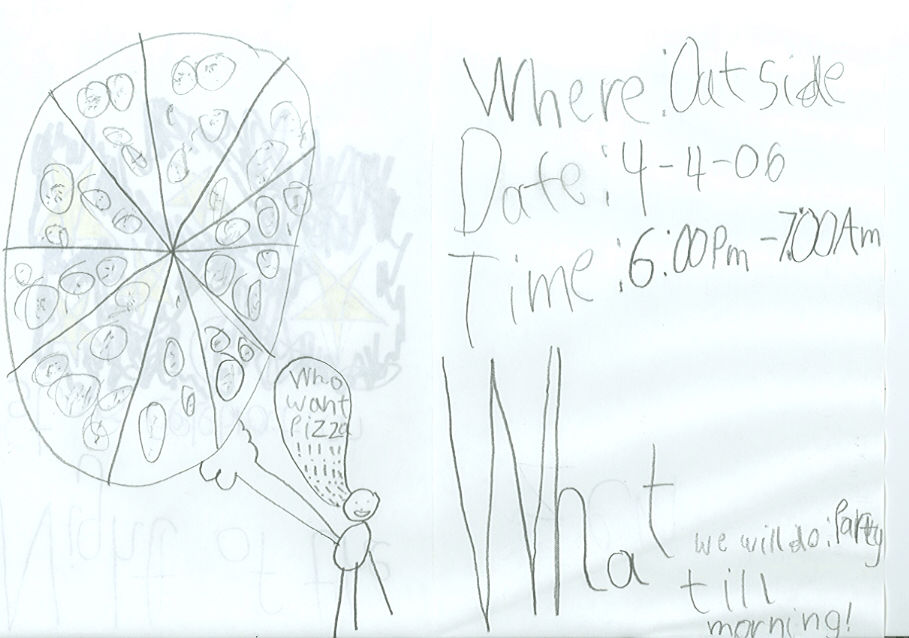 Who
want
Pizza
!!!!!
Where: Outside
Date: 4-4-06
Time: 6:00Pm-7:00Am
What we will do: Party
till
morning!